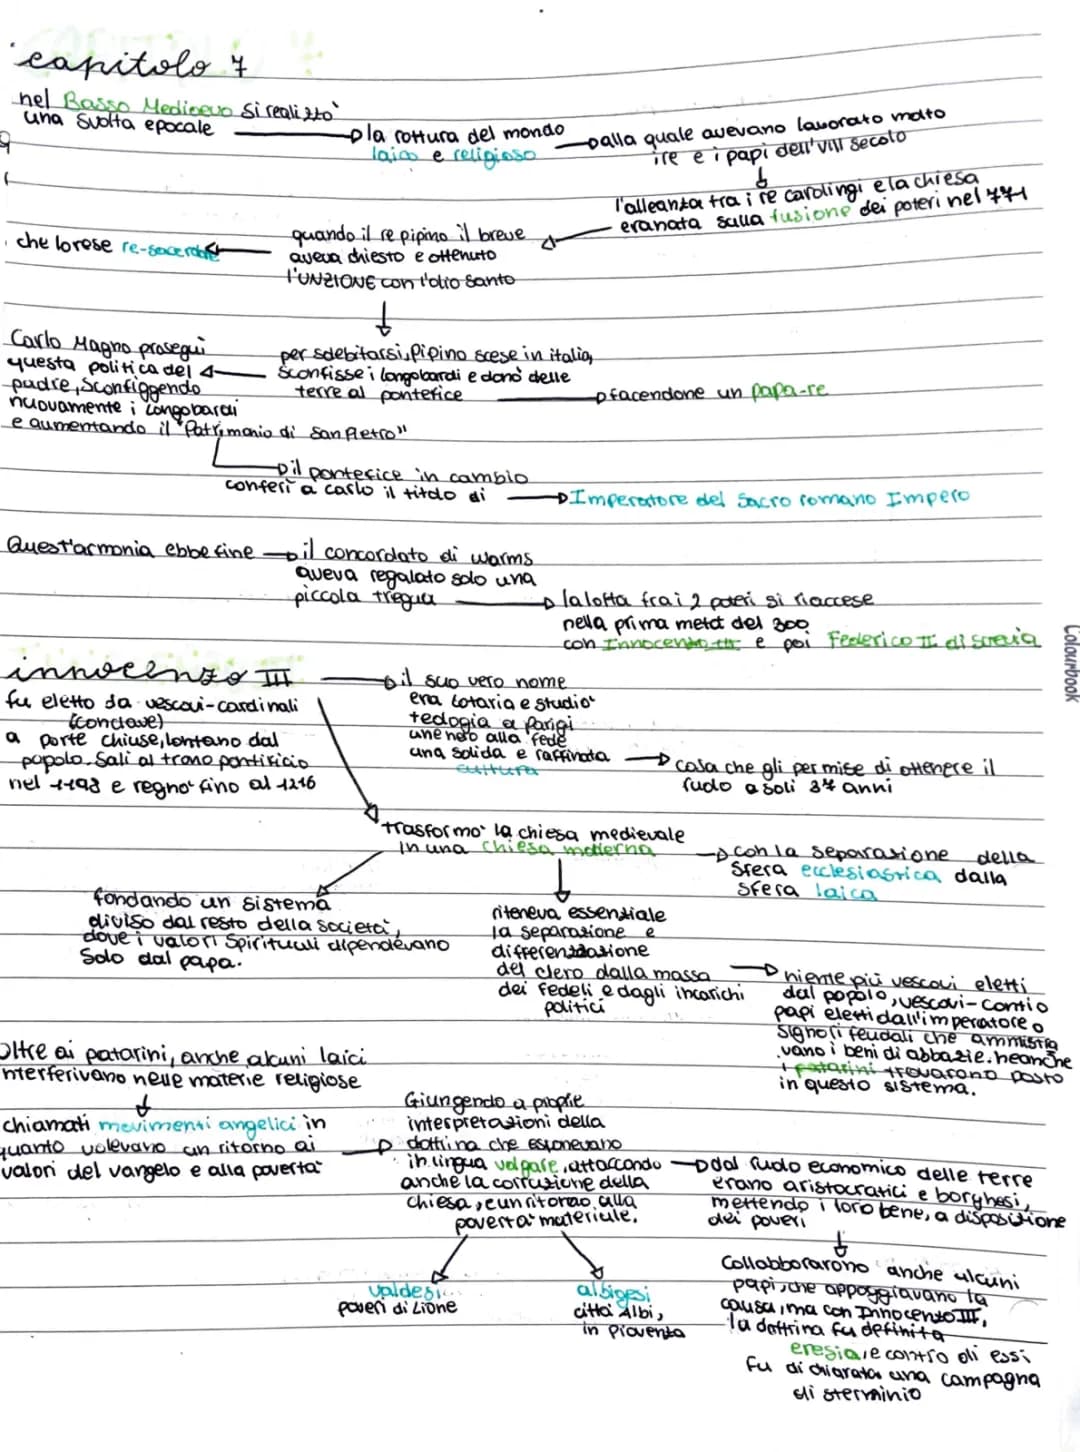 capitolo 7
nel Basso Medioevo si realizzo'
una svolta epocale
la rottura del mondo
laico e religioso
alla quale avevano lavorato molto
i re e i papi dell'VIII secolo
l'alleanza tra i re carolingi e la chiesa
era nata sulla fusione dei poteri nel 771
quando il re pipino il breve
aveva chiesto e ottenuto
l'UNZIONE con l'olio santo
che lo rese re-sacerdote
per sdebitarsi, Pipino scese in italia,
sconfisse i longobardi e donò delle
terre al pontefice
facendone un papa-re
Carlo Magno proseguì
questa politica del
padre, sconfiggendo
nuovamente i longobardi
e aumentando il "Patrimonio di San Pietro"
il pontefice in cambio
conferì a carlo il titolo di
Imperatore del Sacro romano Impero
Quest'armonia ebbe fine
il concordato di worms
aveva regalato solo una
piccola tregua
la lotta fra i 2 poteri si riaccese
nella prima metà del 300
con Innocenzo III e poi Federico II di svevia
innocenzo III
fu eletto da vescovi-cardinali
(conclave)
a porte chiuse, lontano dal
popolo. Sali al trono pontificio
nel 1198 e regno' fino al 1216
il suo vero nome
era Lotario e studio'
teologia a Parigi
una solida e raffinata
cultura
cosa che gli permise di ottenere il
ruolo a soli 37 anni
trasformo' la chiesa medievale
in una chiesa moderna
con la separazione della
sfera ecclesiastica dalla
sfera laica
fondando un sistema
diviso dal resto della società,
dove i valori spirituali dipendevano
solo dal papa.
riteneva essenziale
la separazione e
differenziazione
del clero dalla massa
dei fedeli e dagli incarichi
politici
niente più vescovi eletti
dal popolo, vescovi-conti o
papi eletti dall'imperatore o
signori feudali che amministra
vano i beni di abbazie. neanche
i patarini trovarono posto
in questo sistema.
Oltre ai patarini, anche alcuni laici
nterferivano nelle materie religiose
chiamati movimenti angelici in
quanto volevano un ritorno ai
valori del vangelo e alla poverta'
Giungendo a proprie
interpretazioni della
dottrina che esponevano
in lingua volgare, attaccando
anche la corruzione della
chiesa, e un ritorno alla
poverta' materiale.
dal ruolo economico delle terre
erano aristocratici e borghesi,
mettendo i loro bene, a disposizione
dei poveri
valdesi
poveri di Lione
albigesi
città Albi,
in Provenza
Collabborarono anche alcuni
papi, che appoggiavano la
causa, ma con Innocenzo III,
la dottrina fu definita
eresia, e contro di essi
fu dichiarata una campagna
di sterminio
Colourbook